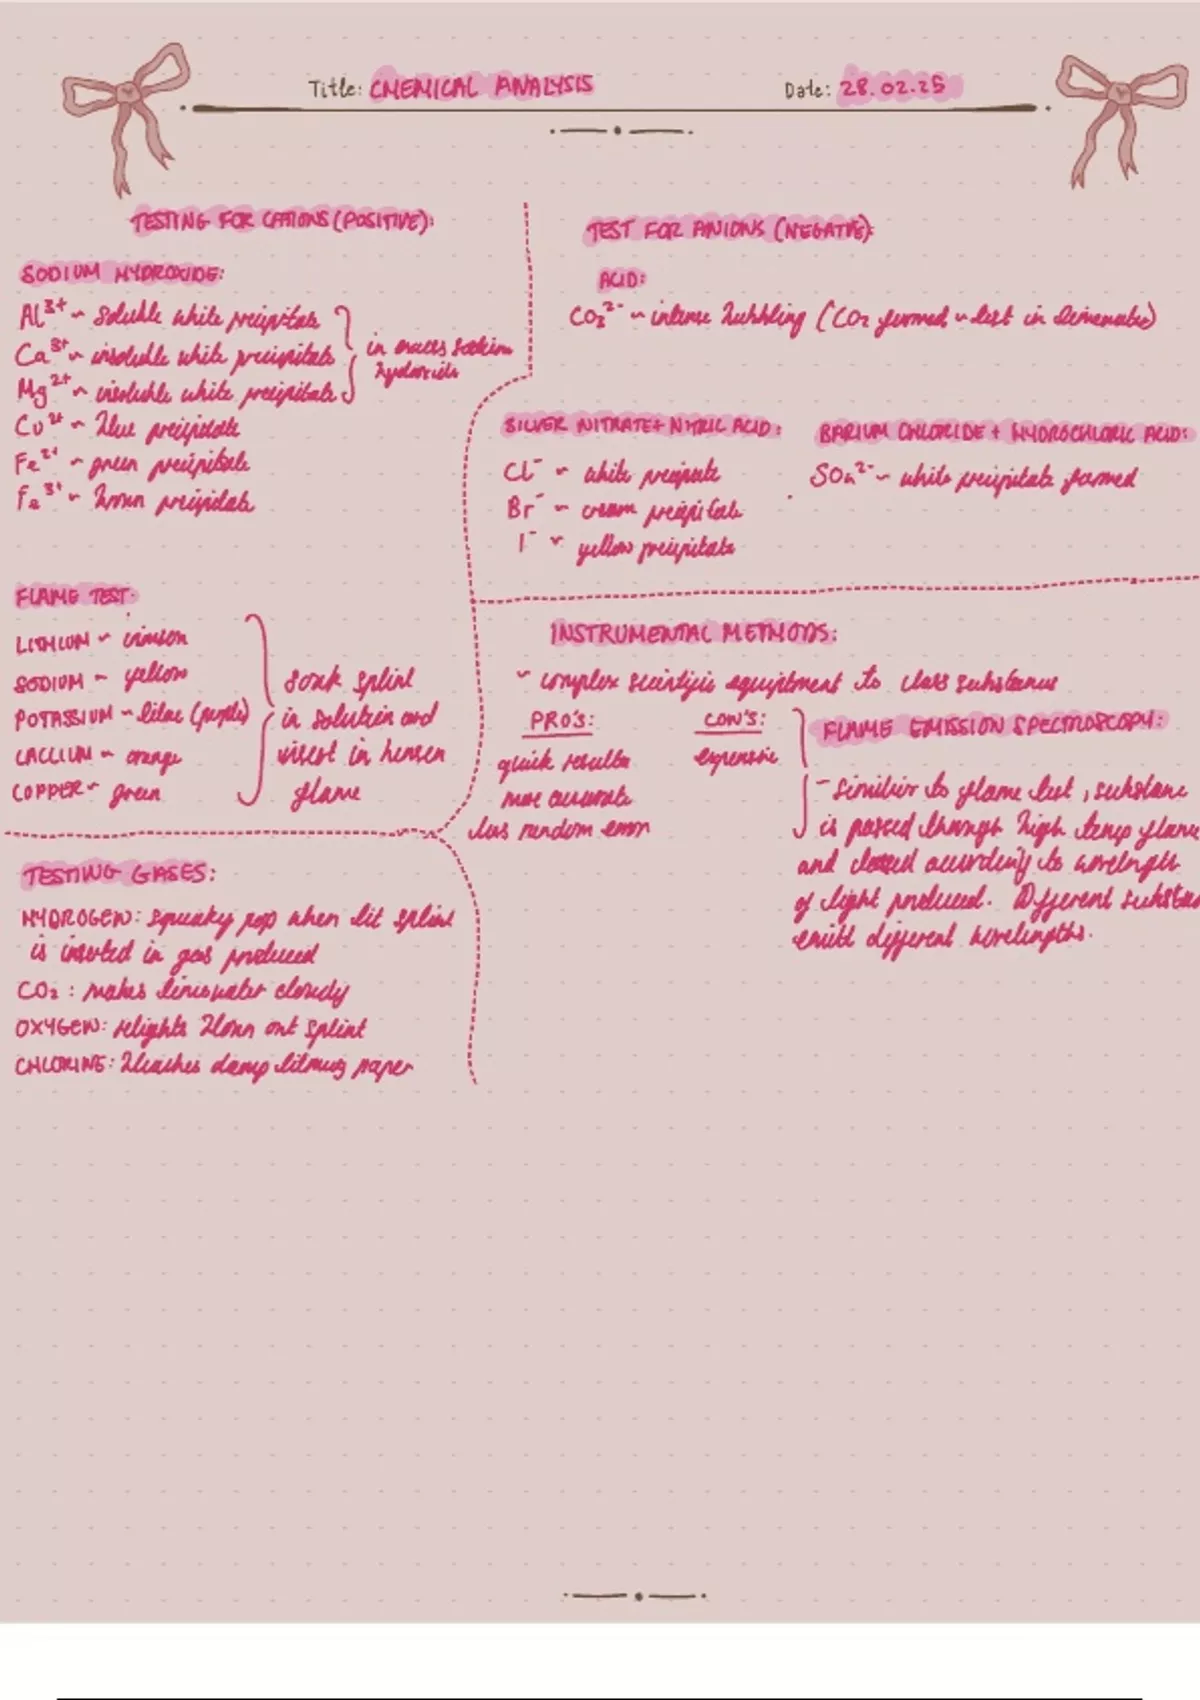 Title: CHEMICAL ANALYSIS
Date: 28.02.25
TESTING FOR CATIONS (POSITIVE):
SODIUM HYDROXIDE:
Al³⁺ ~ soluble white precipitate
Ca³⁺ ~ insoluble white precipitate
Mg²⁺ ~ insoluble white precipitate
in excess sodium
hydroxide
Cu²⁺ ~ blue precipitate
Fe²⁺ ~ green precipitate
Fe³⁺ ~ brown precipitate
FLAME TEST:
LITHIUM ~ crimson
SODIUM ~ yellow
POTASSIUM ~ lilac (purple)
CALCIUM ~ orange
COPPER ~ green
soak splint
in solution and
insert in bunsen
flame
TESTING GASES:
HYDROGEN: squeaky pop when lit splint
is inserted in gas produced
CO₂ : makes limewater cloudy
OXYGEN: relights blown out splint
CHLORINE: bleaches damp litmus paper
TEST FOR ANIONS (NEGATIVE):
ACID:
CO₃²⁻ ~ intense bubbling (CO₂ formed ~ test in limewater)
SILVER NITRATE + NITRIC ACID:
Cl⁻ ~ white precipate
Br⁻ ~ cream precipitate
I⁻ ~ yellow precipitate
BARIUM CHLORIDE + HYDROCHLORIC ACID:
SO₄²⁻ ~ white precipitate formed
INSTRUMENTAL METHODS:
~ complex scientific equiptment to class substances
PRO'S:
quick results
more accurate
less random error
CON'S:
expensive
FLAME EMISSION SPECTROSCOPY:
- similiar to flame test, substanc
is passed through high temp flame
and classed according to wavelength
of light produced. Different substan
emitt different wavelengths.